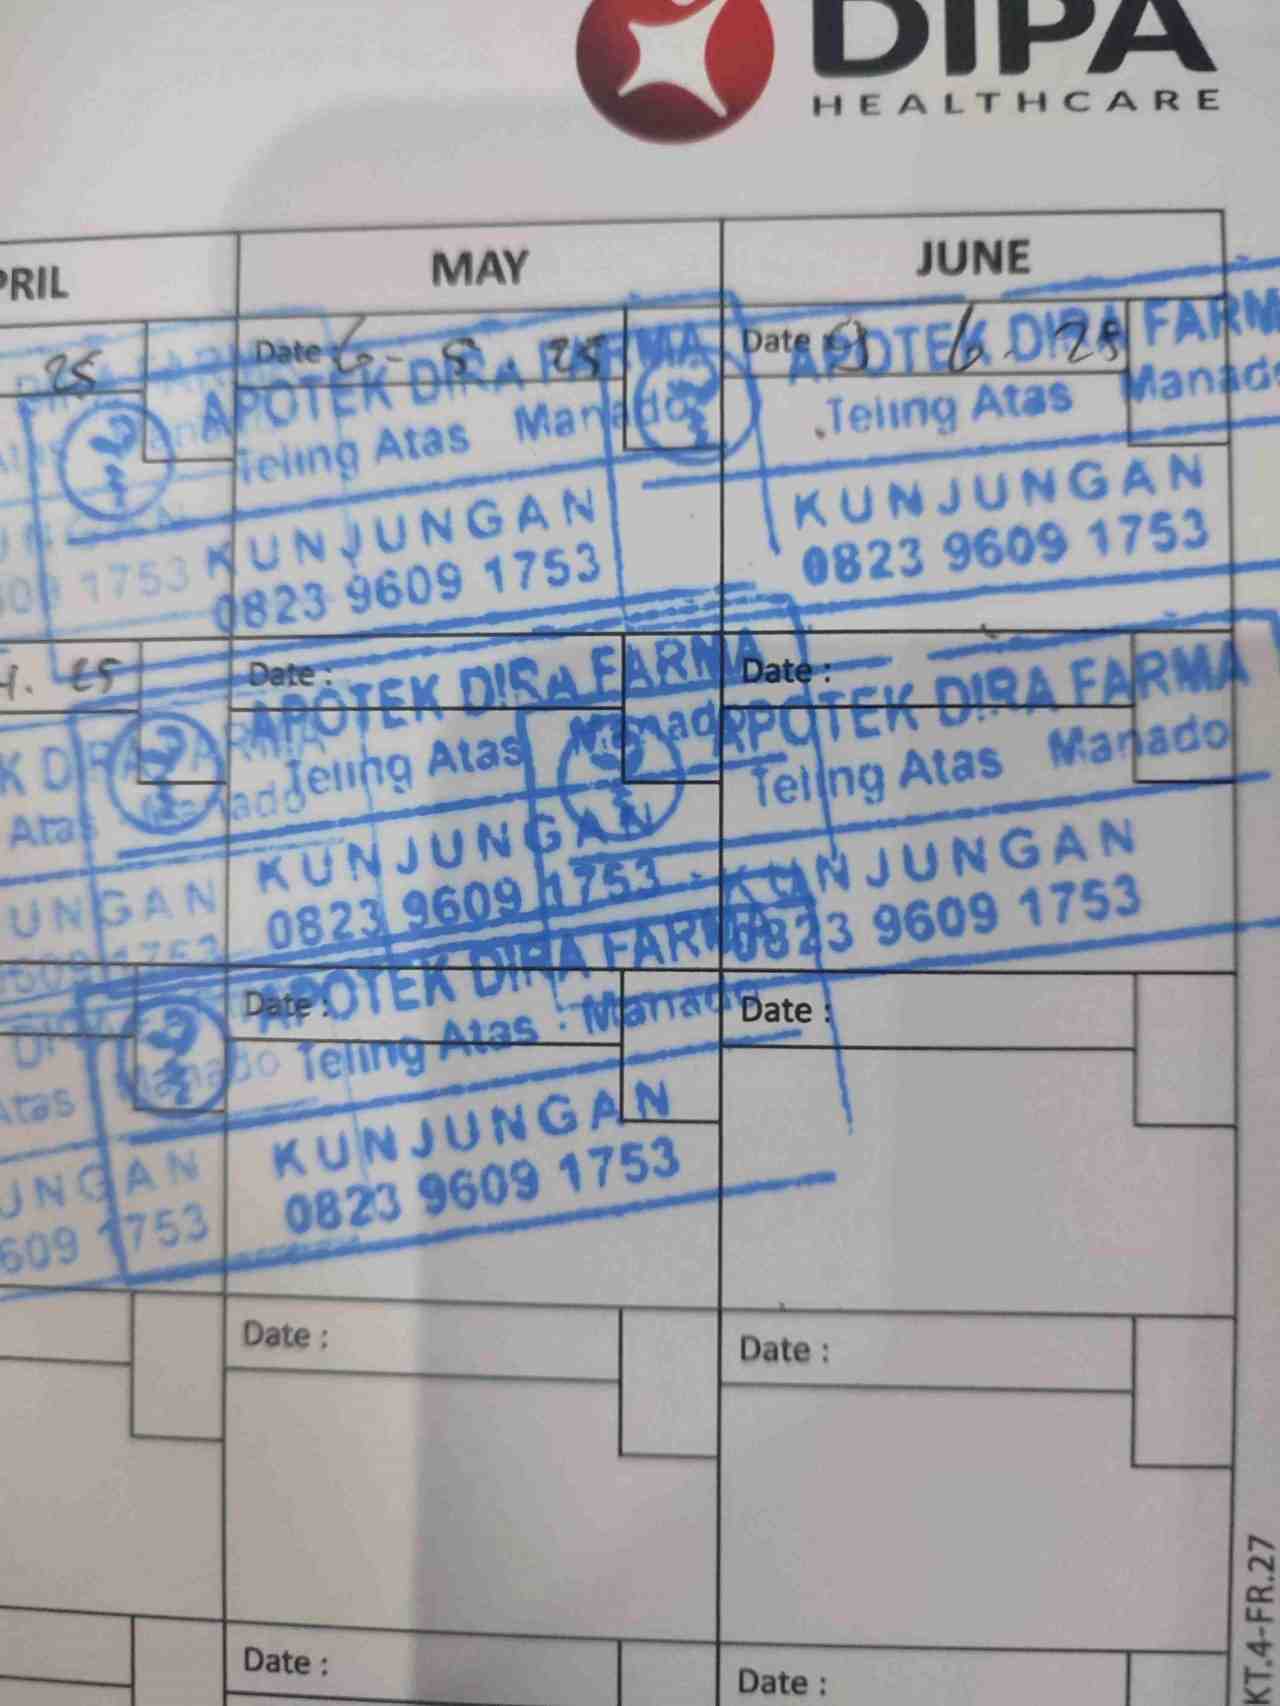 DIPA
HEALTHCARE
PRIL
MAY
JUNE
25
Date : 6 - 5 25
Date : 9 6 - 25
APOTEK DIRA FARMA
Teling Atas Manado
KUNJUNGAN
0823 9609 1753
APOTEK DIRA FARMA
Teling Atas Manado
KUNJUNGAN
0823 9609 1753
1753
Date :
Date :
APOTEK DIRA FARMA
Teling Atas Manado
KUNJUNGAN
0823 9609 1753
APOTEK DIRA FARMA
Teling Atas Manado
KUNJUNGAN
0823 9609 1753
Atas
UNGAN
Date :
Date :
APOTEK DIRA FARMA
Teling Atas Manado
KUNJUNGAN
0823 9609 1753
UNGAN
609 1753
Date :
Date :
Date :
Date :
KT.4-FR.27